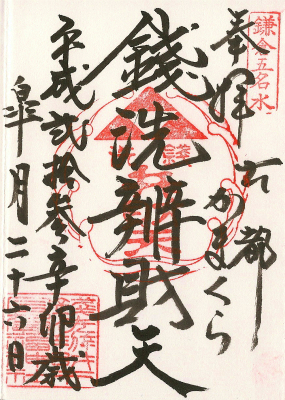 鎌倉五名水
奉拝
古都
かまくら
銭洗
錢洗辨財天
平成弐拾参辛卯歳
皐月二十六日